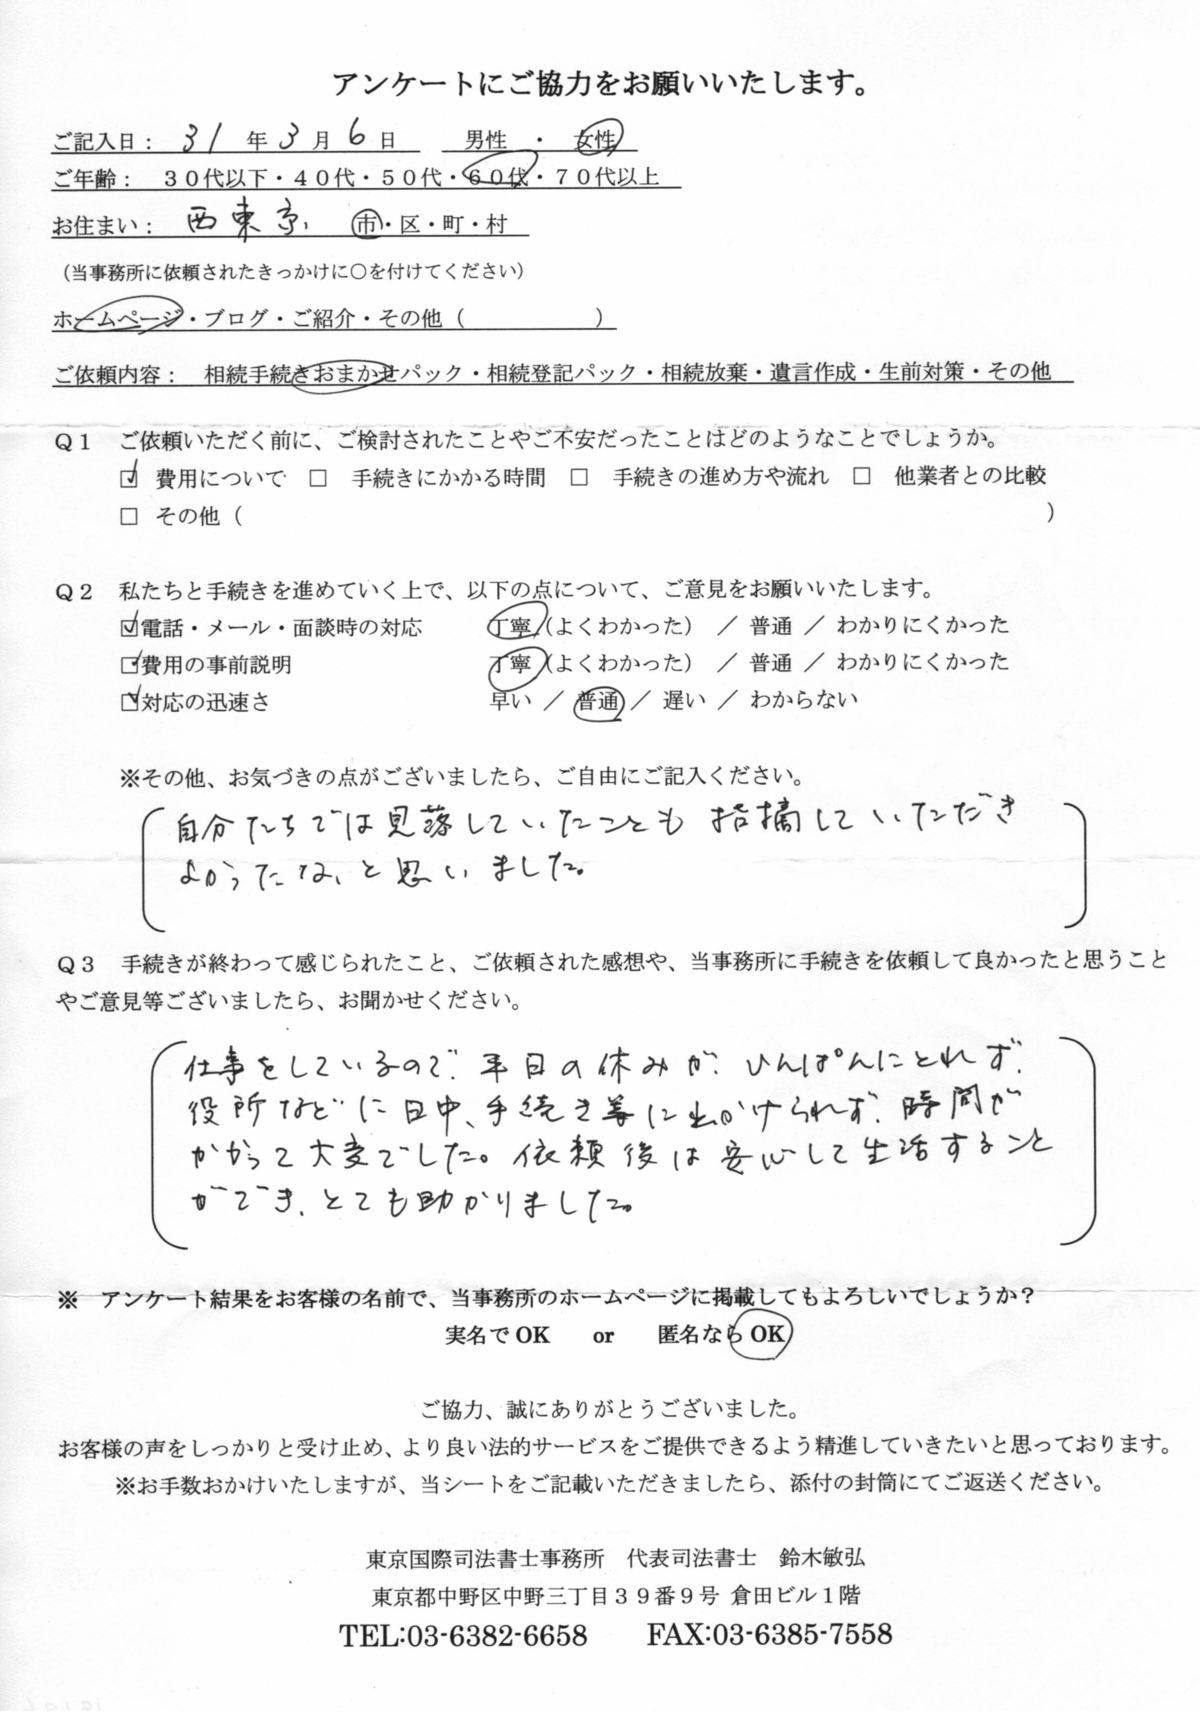 アンケートにご協力をお願いいたします。
ご記入日： 31 年 3 月 6 日　男性 ・ 女性
ご年齢： ３０代以下・４０代・５０代・６０代・７０代以上
お住まい： 西東京 市・区・町・村
（当事務所に依頼されたきっかけに○を付けてください）
ホームページ・ブログ・ご紹介・その他（　　　　　　）
ご依頼内容： 相続手続きおまかせパック・相続登記パック・相続放棄・遺言作成・生前対策・その他
Ｑ１　ご依頼いただく前に、ご検討されたことやご不安だったことはどのようなことでしょうか。
☑ 費用について □ 手続きにかかる時間 □ 手続きの進め方や流れ □ 他業者との比較
□ その他（　　　　　　）
Ｑ２　私たちと手続きを進めていく上で、以下の点について、ご意見をお願いいたします。
☑電話・メール・面談時の対応　丁寧（よくわかった） ／ 普通 ／ わかりにくかった
☑費用の事前説明　丁寧（よくわかった） ／ 普通 ／ わかりにくかった
☑対応の迅速さ　早い ／ 普通 ／ 遅い ／ わからない
※その他、お気づきの点がございましたら、ご自由にご記入ください。
自分たちでは見落していたことも 指摘していただき
よかったな、と思いました。
Ｑ３　手続きが終わって感じられたこと、ご依頼された感想や、当事務所に手続きを依頼して良かったと思うこと
やご意見等ございましたら、お聞かせください。
仕事をしているので、平日の休みが、ひんぱんにとれず、
役所などに日中、手続き等に出かけられず、時間が
かかって大変でした。依頼後は安心して生活すること
ができ、とても助かりました。
※　アンケート結果をお客様の名前で、当事務所のホームページに掲載してもよろしいでしょうか？
実名で OK　or　匿名なら OK
ご協力、誠にありがとうございました。
お客様の声をしっかりと受け止め、より良い法的サービスをご提供できるよう精進していきたいと思っております。
※お手数おかけいたしますが、当シートをご記載いただきましたら、添付の封筒にてご返送ください。
東京国際司法書士事務所　代表司法書士　鈴木敏弘
東京都中野区中野三丁目３９番９号 倉田ビル１階
TEL:03-6382-6658　FAX:03-6385-7558